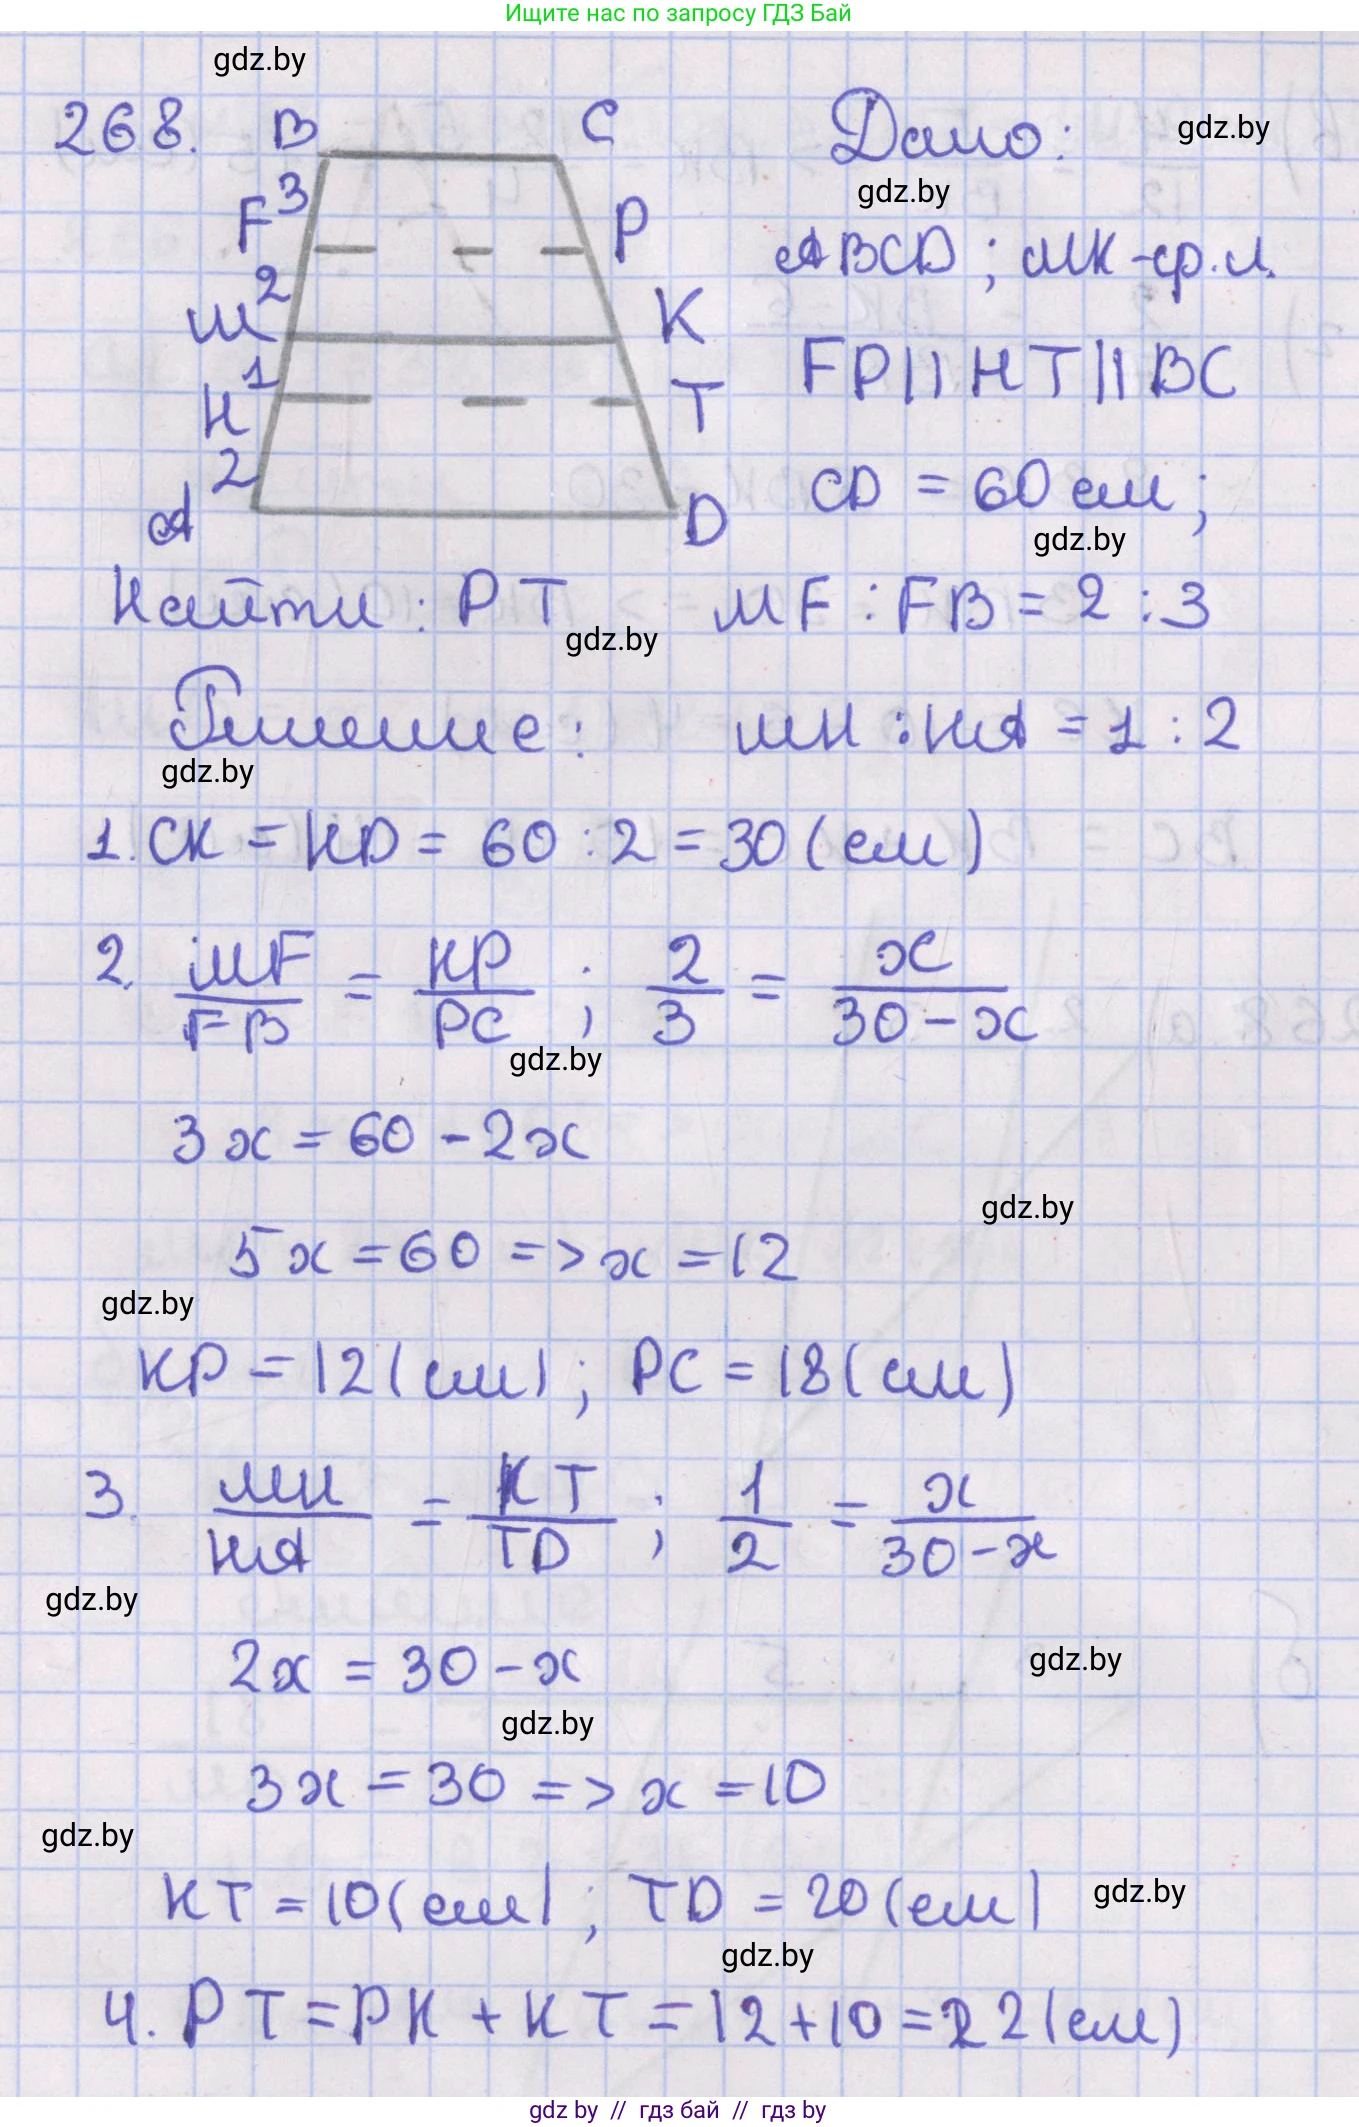 Ищите нас по запросу ГДЗ Бай
gdz.by
268. B C Дано: gdz.by
gdz.by
F 3 P ABCD; MK-ср.л.
2
M K FP || HT || BC
1
H T
2 CD = 60 см;
A D gdz.by
Найти: PT MF : FB = 2 : 3
gdz.by
Решение: MH : HA = 1 : 2
gdz.by
1. CK = KD = 60 : 2 = 30 (см)
2. MF/FB = KP/PC ; 2/3 = x/(30 - x)
gdz.by
3x = 60 - 2x
gdz.by
5x = 60 => x = 12
gdz.by
KP = 12 (см); PC = 18 (см)
3. MH/HA = KT/TD ; 1/2 = x/(30 - x)
gdz.by
2x = 30 - x
gdz.by
gdz.by
3x = 30 => x = 10
gdz.by
KT = 10 (см); TD = 20 (см)
gdz.by
gdz.by
4. PT = PK + KT = 12 + 10 = 22 (см)
gdz by // гдз бай // гдз by